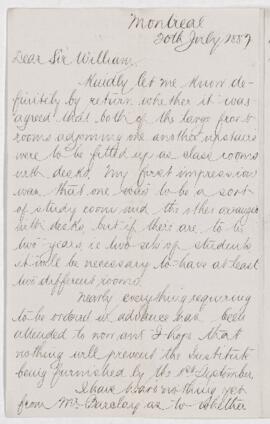 Montreal
20th July 1889
Dear Sir William,
Kindly let me know de-
finitely by return whether it was
agreed that both of the large front
rooms adjoining one another upstairs
were to be fitted up as class rooms
with desks. My first impression
was that one was to be a sort
of study room and the other arranged
with desks, but if there are to be
two years, ie two sets of students
it will be necessary to have at least
two different rooms.
Nearly everything requiring
to be ordered in advance has been
attended to now and I hope that
nothing will prevent the Institute
being furnished by the 1st September
I have heard nothing yet
from Mr. Barclay as to whether